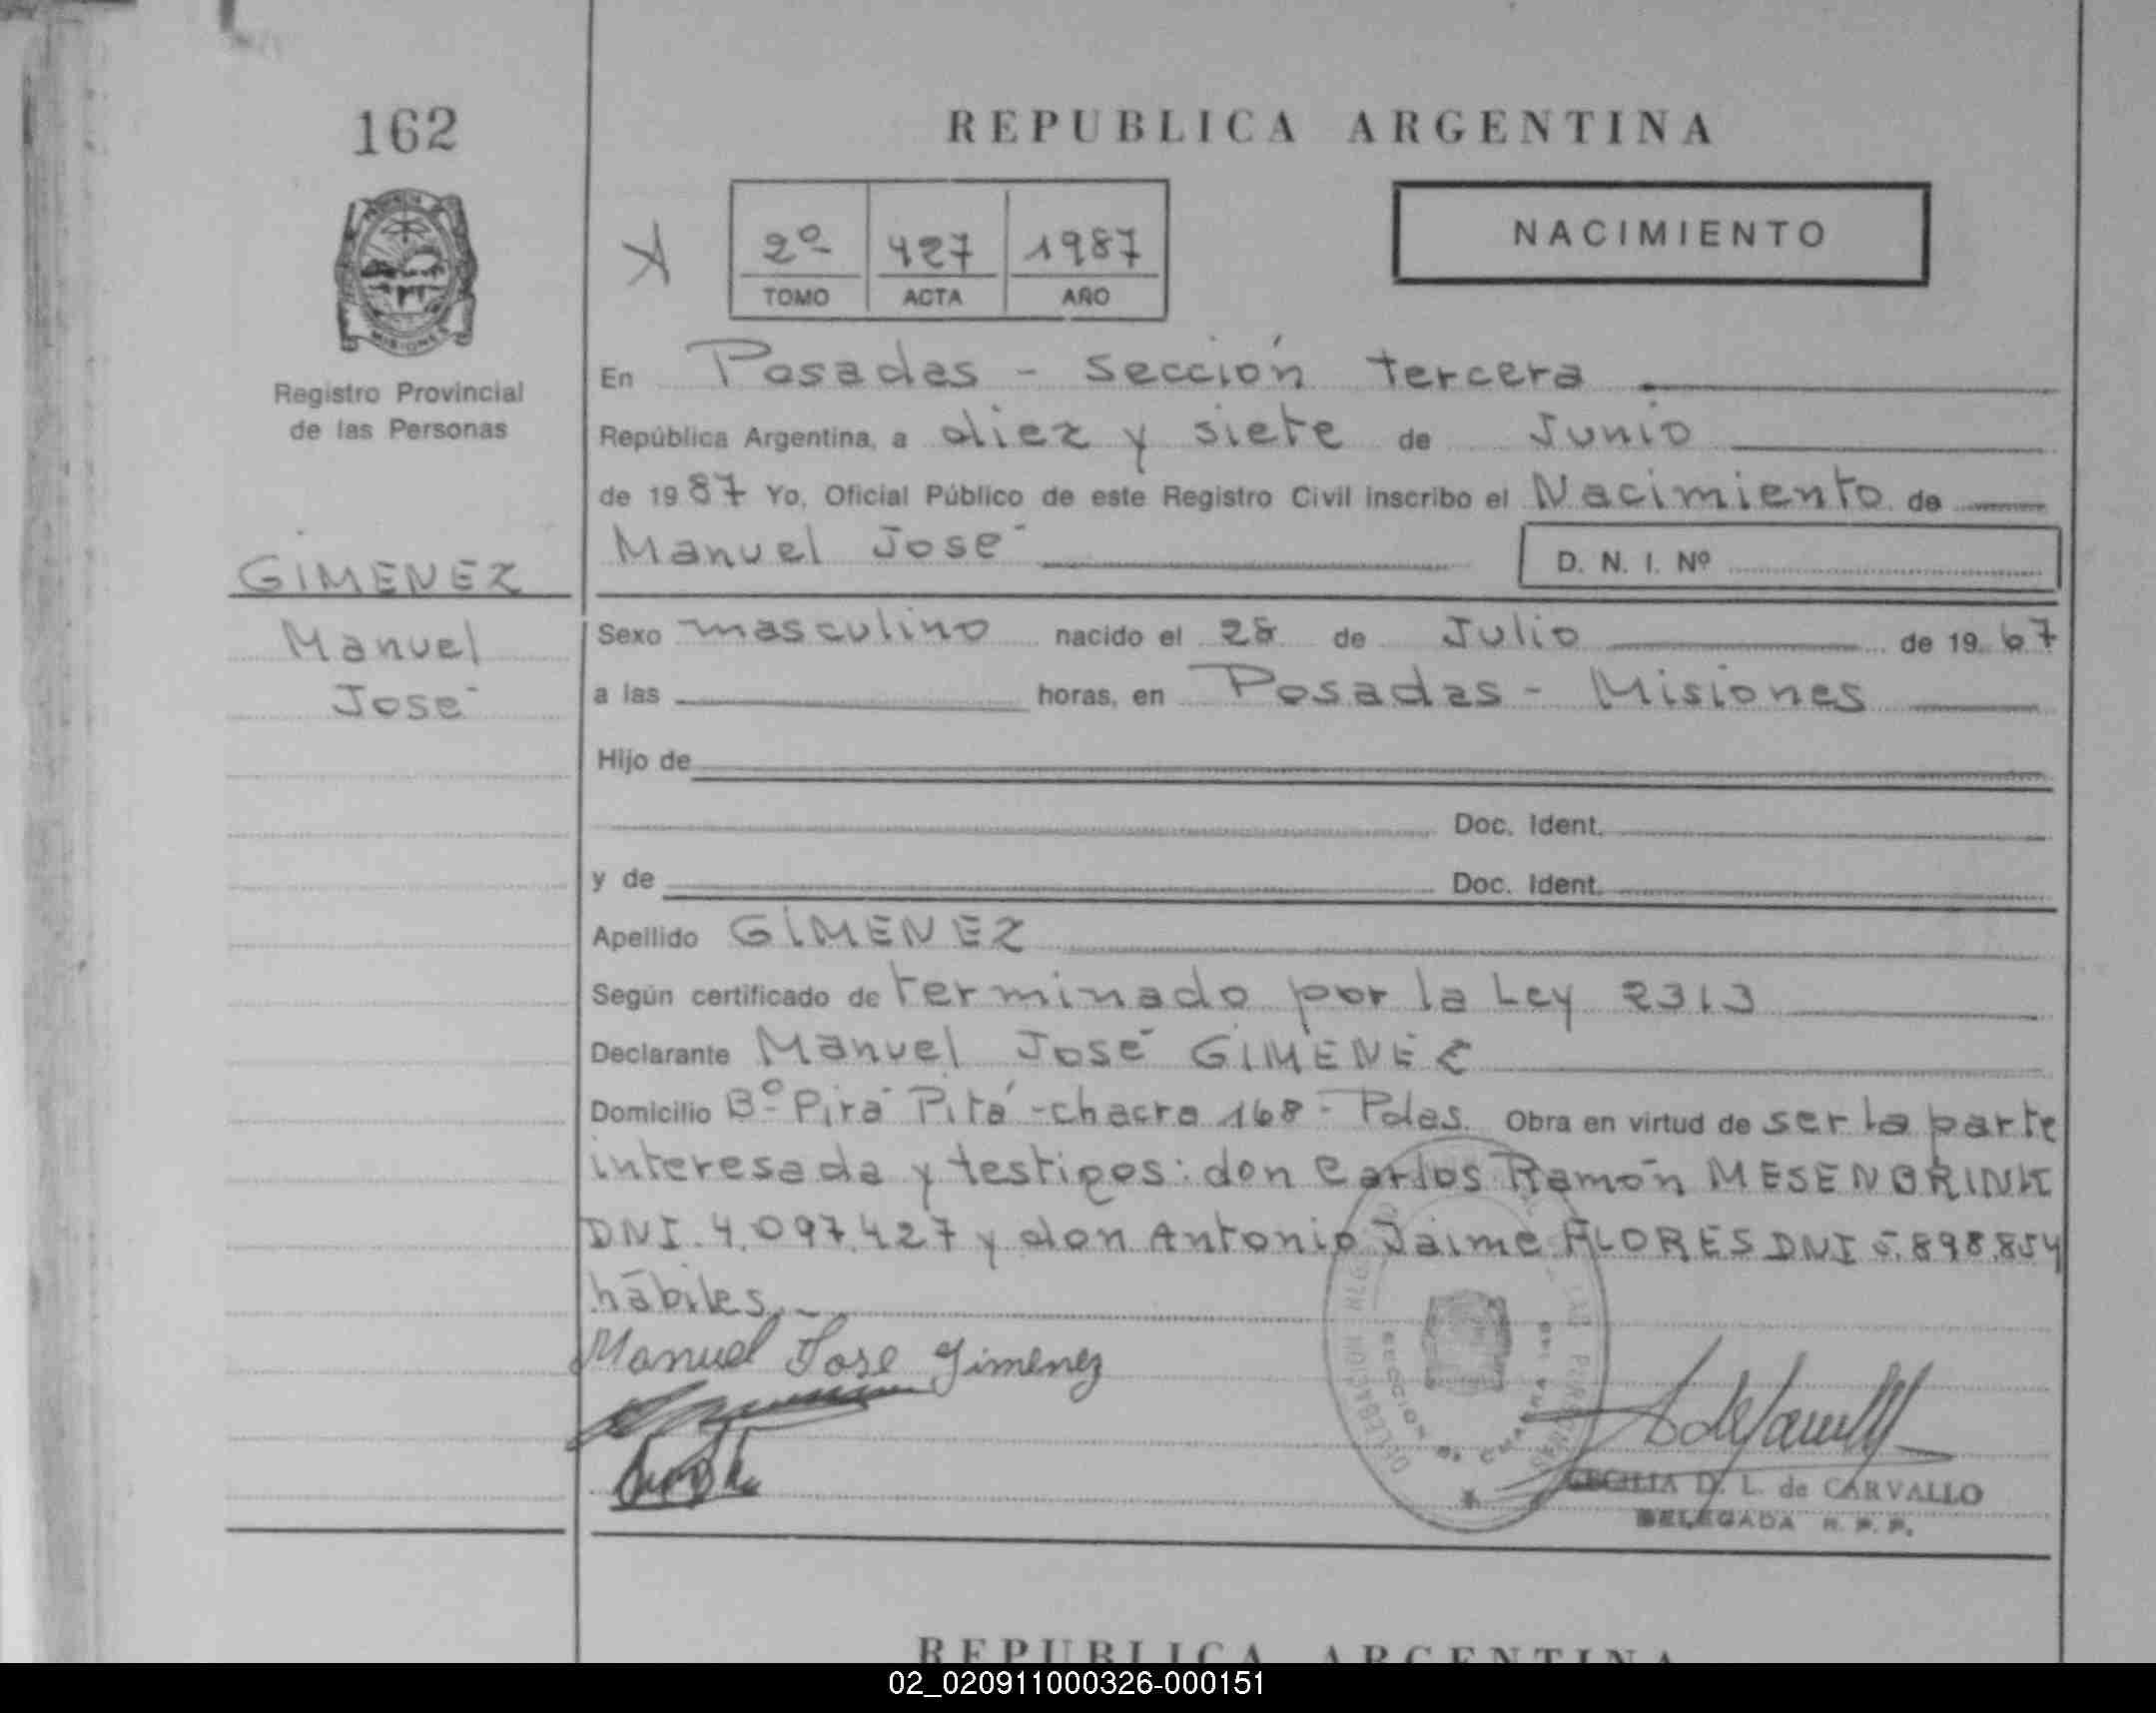 162
REPUBLICA ARGENTINA
2º 427 1987
TOMO ACTA AÑO
NACIMIENTO
MISIONES
Registro Provincial
de las Personas
GIMENEZ
Manuel
José
En Posadas - sección tercera
República Argentina, a diez y siete de Junio
de 1987 Yo, Oficial Público de este Registro Civil inscribo el Nacimiento de
Manuel José
D. N. I. Nº
Sexo masculino nacido el 28 de Julio de 1967
a las horas, en Posadas - Misiones
Hijo de
Doc. Ident.
y de Doc. Ident.
Apellido GIMENEZ
Según certificado de terminado por la Ley 2313
Declarante Manuel José GIMENEZ
Domicilio Bº Pirá Pitá - chacra 168 - Pdas. Obra en virtud de ser la parte
interesada y testigos: don Carlos Ramón MESENBRINK
DNI. 4.097.427 y don Antonio Jaime FLORES DNI 5.898.854
hábiles.-
Manuel Jose Gimenez
CECILIA D. L. de CARVALLO
DELEGADA R. P. P.
REPUBLICA ARGENTINA
02_020911000326-000151